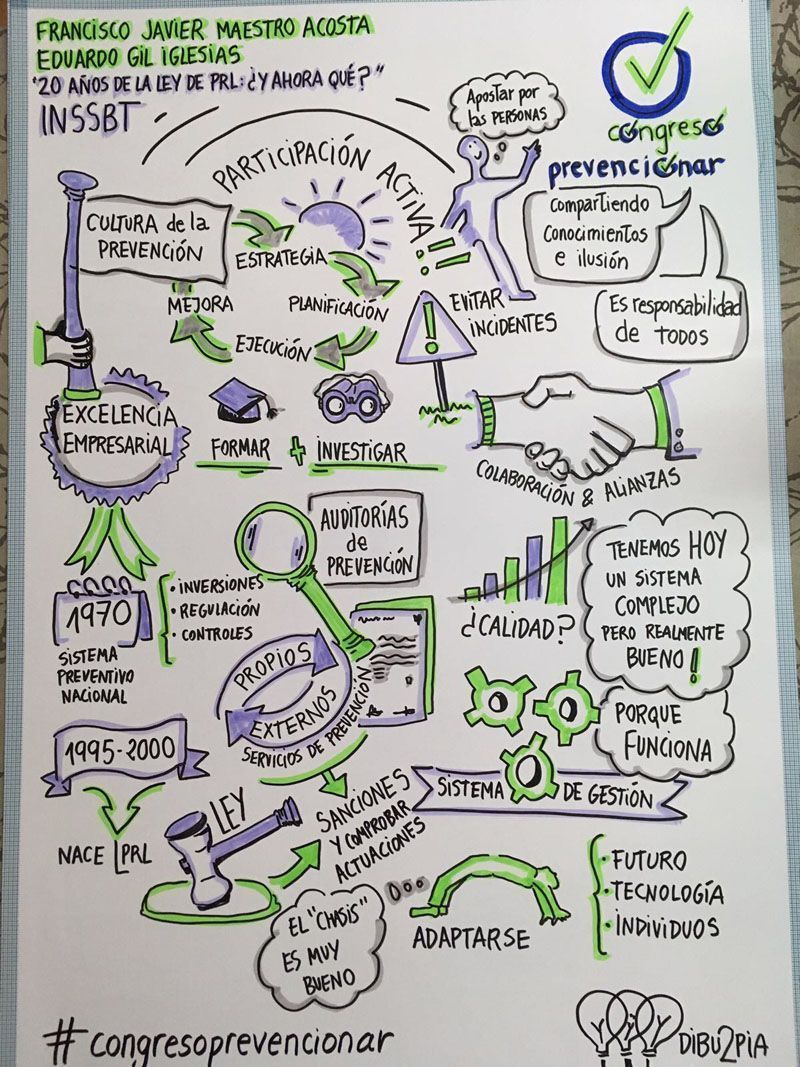 FRANCISCO JAVIER MAESTRO ACOSTA
EDUARDO GIL IGLESIAS
"20 AÑOS DE LA LEY DE PRL: ¿Y AHORA QUÉ?"
INSSBT
Apostar por
las PERSONAS
congreso
prevencionar
compartiendo
conocimientos
e ilusión
Es responsabilidad
de TODOS
PARTICIPACIÓN ACTIVA!!
CULTURA de la
PREVENCIÓN
ESTRATEGIA
PLANIFICACIÓN
EJECUCIÓN
MEJORA
EVITAR
INCIDENTES
EXCELENCIA
EMPRESARIAL
FORMAR + INVESTIGAR
COLABORACIÓN & ALIANZAS
AUDITORÍAS
de
PREVENCIÓN
1970
SISTEMA
PREVENTIVO
NACIONAL
· INVERSIONES
· REGULACIÓN
· CONTROLES
PROPIOS
EXTERNOS
SERVICIOS DE PREVENCIÓN
¿CALIDAD?
TENEMOS HOY
UN SISTEMA
COMPLEJO
PERO REALMENTE
BUENO!
PORQUE
FUNCIONA
SISTEMA DE GESTIÓN
1995-2000
NACE LPRL
LEY
SANCIONES
Y COMPROBAR
ACTUACIONES
EL "CHASIS"
ES MUY
BUENO
ADAPTARSE
· FUTURO
· TECNOLOGÍA
· INDIVIDUOS
#congresoprevencionar
DIBU2PIA